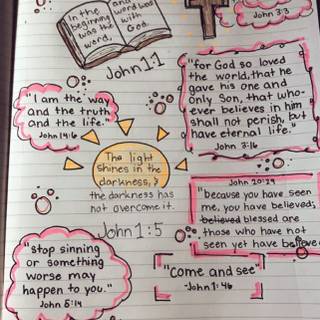 In the
beginning
was the
word,
and the
word was
with
God.
John 1:1
John 3:3
"for God so loved
the world, that he
gave his one and
only Son, that who-
ever believes in him
shall not perish, but
have eternal life."
John 3:16
"I am the way
and the truth
and the life."
John 14:6
The light
shines in the
darkness, &
the darkness has
not overcome it.
John 1:5
John 20:29
"Because you have seen
me, you have believed;
believed blessed are
those who have not
seen yet have believe
"Stop sinning
or something
worse may
happen to you."
John 5:14
"Come and see"
-John 1:46